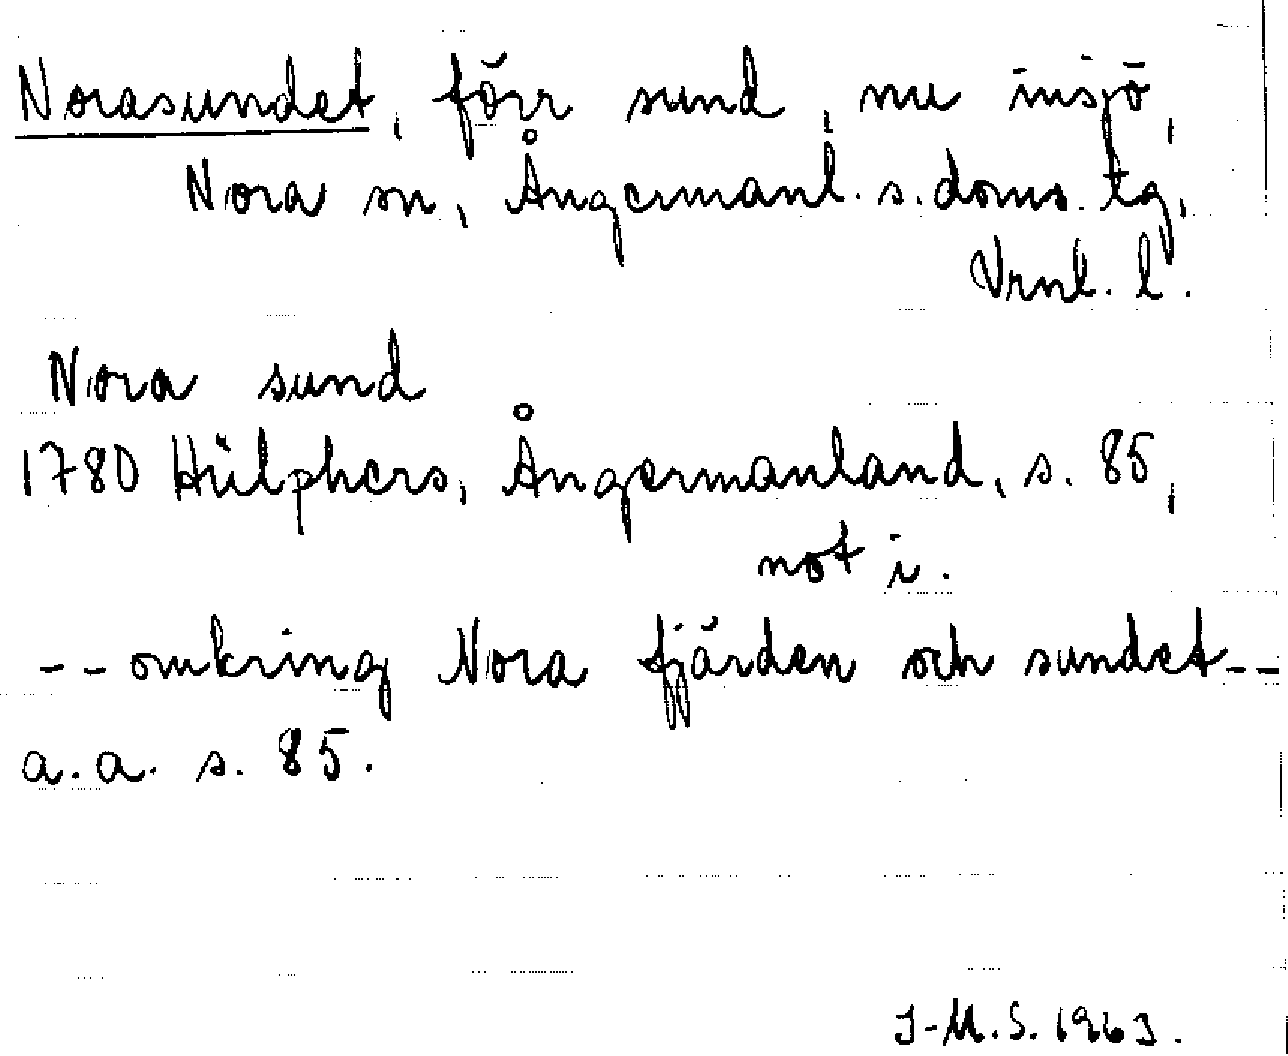 Norasundet, förr sund, nu insjö,
Nora sn, Ångermanl. s. doms. tg,
Vrnl. l.
Nora sund
1780 Hülphers, Ångermanland, s. 85,
not i.
-- omkring Nora fjärden och sundet --
a.a. s. 85.
I-M.S. 1963.